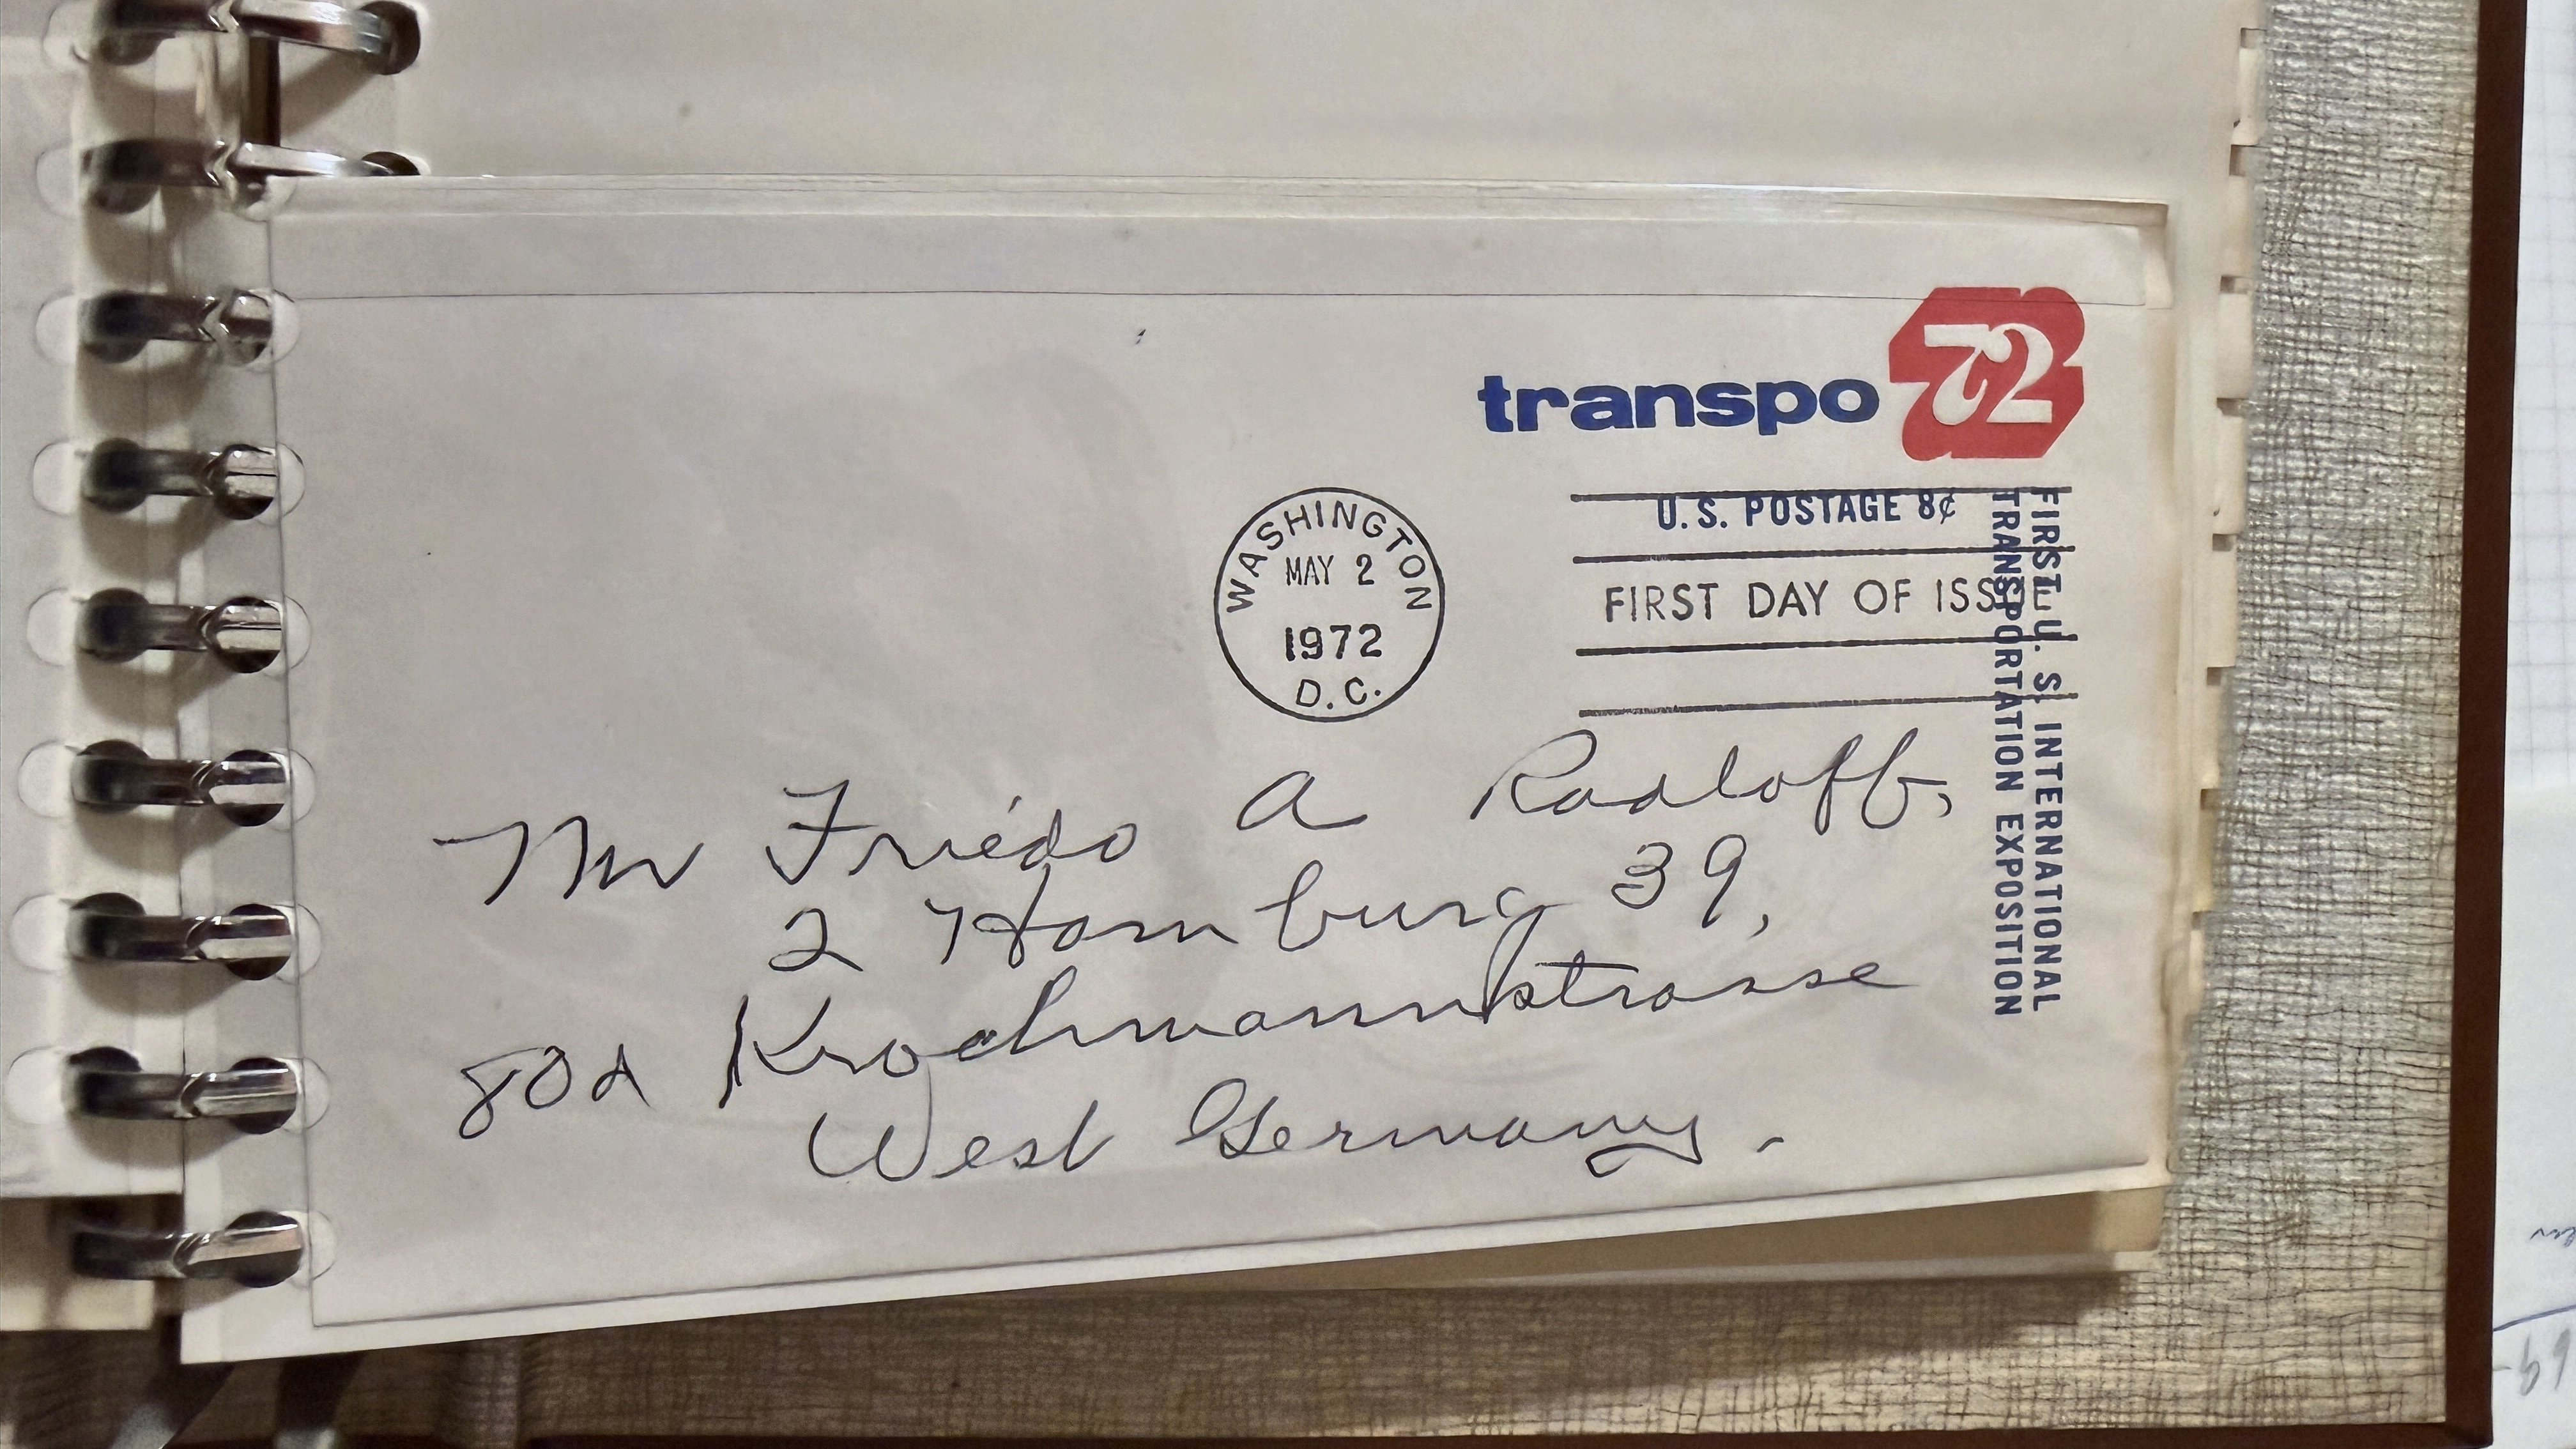 transpo 72
U.S. POSTAGE 8¢
FIRST DAY OF ISSUE
FIRST U. S. INTERNATIONAL
TRANSPORTATION EXPOSITION
WASHINGTON
MAY 2
1972
D.C.
Mr Friedo A Radloff,
2 Hamburg 39,
80d Krochmannstrasse
West Germany.